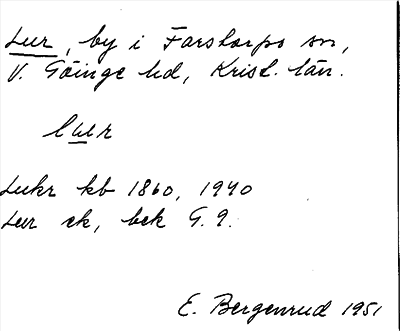 Lur, by i Farstorps sn,
V. Göinge hd, Krist. län.
lu̲r
Luhr kb 1860, 1940
Lur ek, bek G. 9.
E. Bergenrud 1951